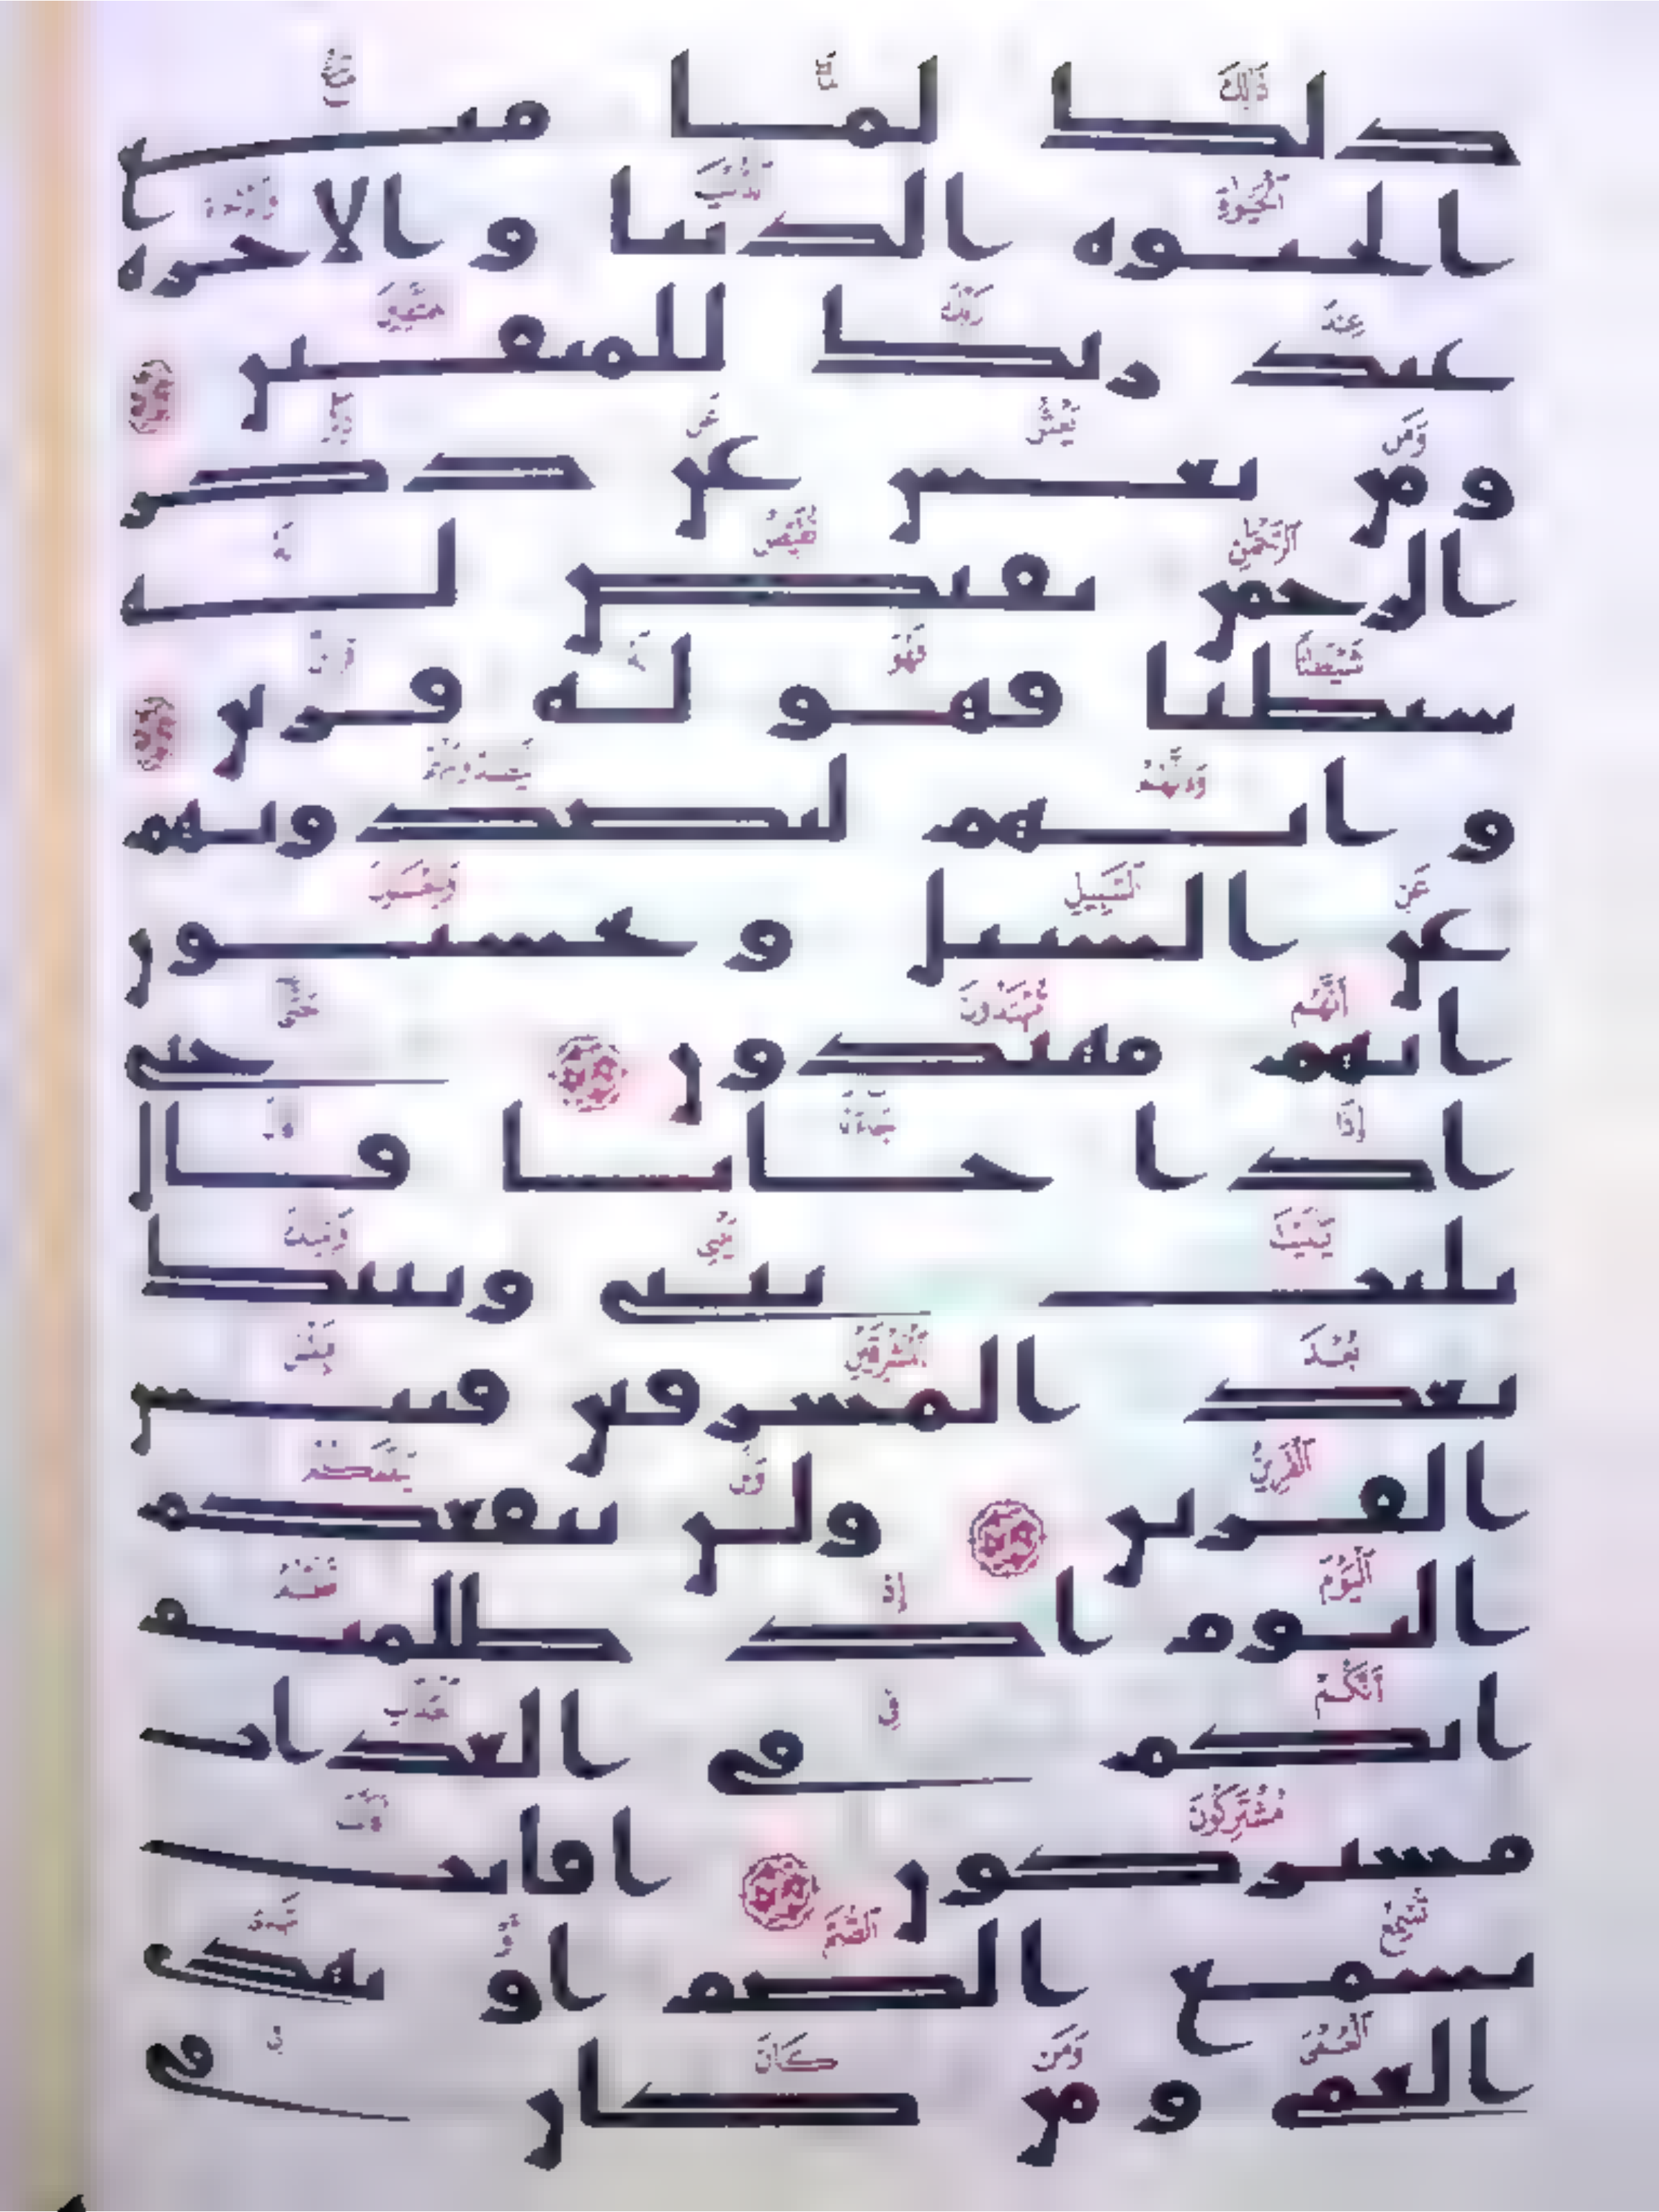 ذلك لما متع
الحيوه الدنيا و الاخره
عند ربك للمتقين
و من يعش عن ذكر
الرحمن نقيض له
شيطنا فهو له قرين
و انهم ليصدونهم
عن السبيل و يحسبون
انهم مهتدون حتى
اذا جاانا قال
يليت بيني وبينك
بعد المشرقين فبئس
القرين ولن ينفعكم
اليوم اذ ظلمتم
انكم في العذاب
مشتركون افانت
تسمع الصم او تهدي
العمي و من كان في